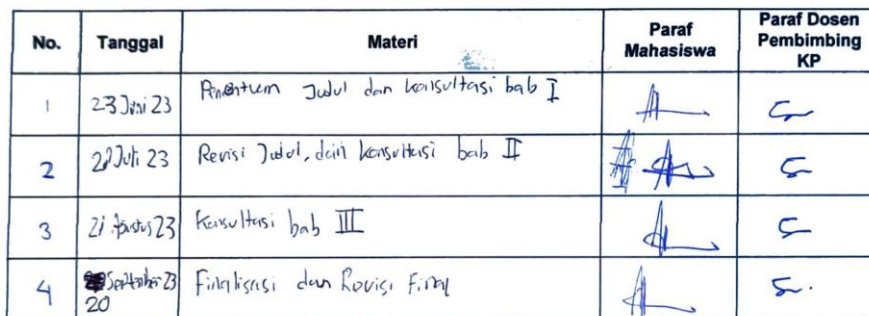 No. Tanggal Materi Paraf Mahasiswa Paraf Dosen Pembimbing KP
1 23 Juni 23 Penentuan Judul dan konsultasi bab I
2 Juli 23 Revisi Judul, dan konsultasi bab II
3 21 Agustus 23 Konsultasi bab III
4 September 23 Finalisasi dan Revisi Final
20